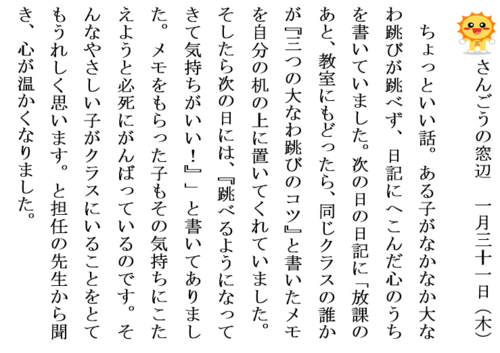 さんごうの窓辺　一月三十一日（木）
　ちょっといい話。ある子がなかなか大な
わ跳びが跳べず、日記にへこんだ心のうち
を書いていました。次の日の日記に「放課の
あと、教室にもどったら、同じクラスの誰か
が『三つの大なわ跳びのコツ』と書いたメモ
を自分の机の上に置いてくれていました。
そしたら次の日には、『跳べるようになって
きて気持ちがいい！』」と書いてありまし
た。メモをもらった子もその気持ちにこた
えようと必死にがんばっているのです。そ
んなやさしい子がクラスにいることをとて
もうれしく思います。と担任の先生から聞
き、心が温かくなりました。